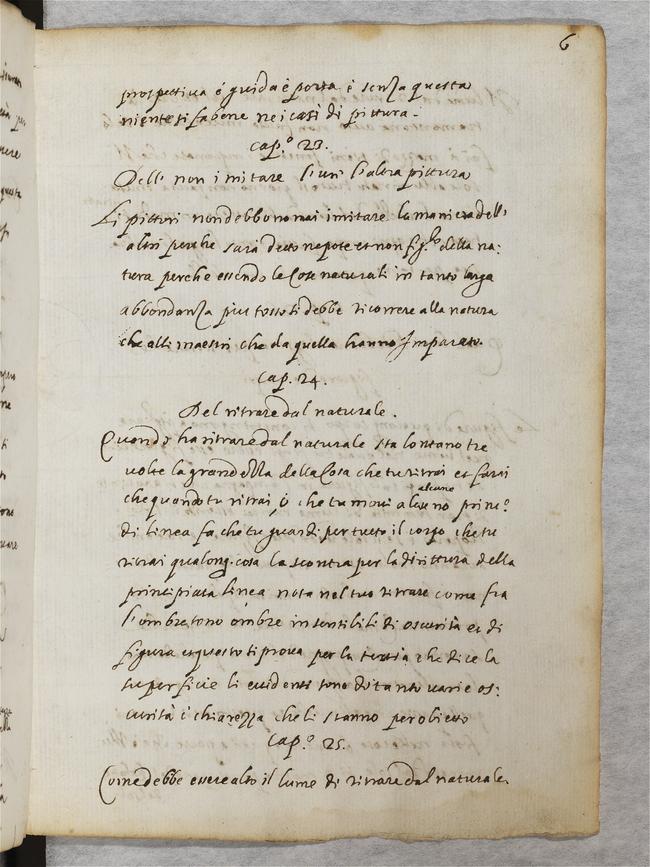 6
prospettiva è guida è porta è senza questa
niente si fa bene nei casi di pittura.
Cap.º 23.
Dell' non imitare l'un' l'altra pittura
Li pittori non debbono mai imitare la maniera dell'
altri perche sarà detto nepote et non fig.lo della na:
tura perche essendo le cose naturali in tanto larga
abbondanza piu tosto si debbe ricorrere alla natura
che alli maestri che da quella hanno Imparato.
Cap. 24.
Del ritrare dal naturale.
Quando ha ritrare dal naturale sta lontano tre
volte la grandezza della Cosa che tu ritrai et farai
che quando tu ritrai, ò che tu movi alcuno alcune princ.º
di linea fa che tu guardi per tutto il corpo che tu
ritrai qualong. cosa la scontra per la dirittura della
principiata linea nota nel tuo ritrare come fra
l'ombre sono ombre insensibili di oscurità et di
figura et questo si prova per la tertia che dice la
superficie li evidenti sono di tanto varie os:
curità è chiarezza che li stanno per obietto
Cap.º 25.
Come debbe essere alto il lume di ritrare dal naturale.